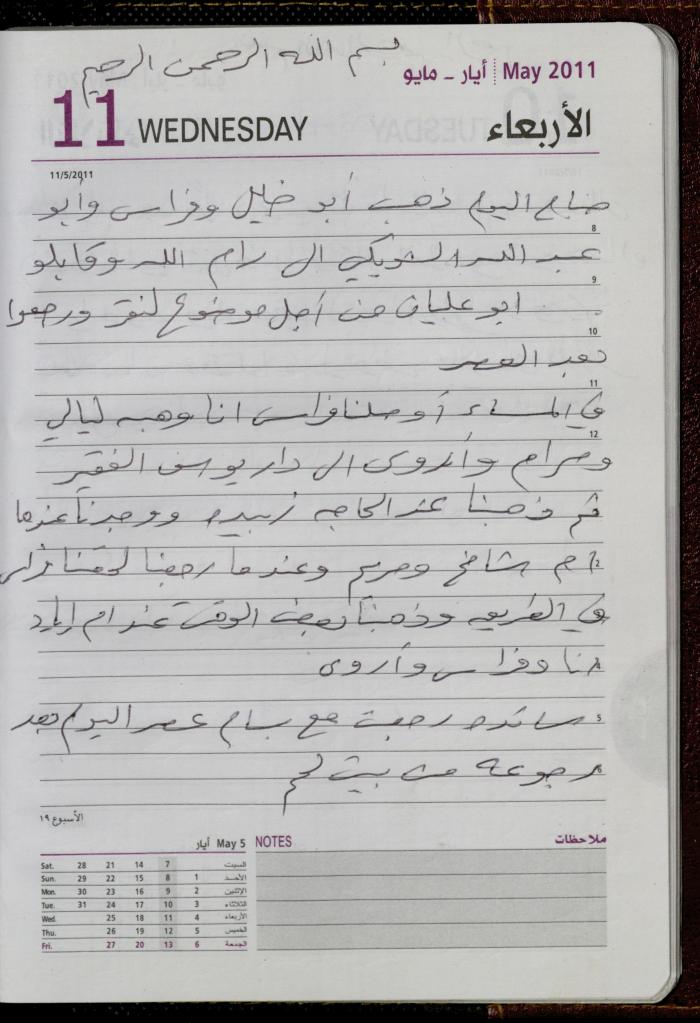 بسم الله الرحمن الرحيم
أيار - مايو May 2011
11 WEDNESDAY الأربعاء
11/5/2011
صباح اليوم ذهب أبو خليل وفراس وأبو
8
عبد الله الشويكي الى رام الله وقابلو
9
ابو عليان من أجل موضوع لنقر ورجعوا
10
بعد العصر
11
في المساء أوصلنا فراس انا وهبه ليالي
12
ومرام وأروى الى دار يوسف الفقير
ثم ذهبنا عند الحاجه زبيده ووجدنا عندها
ام شامخ ومريم وعندما رجعنا لحقنا فراس
2
في الطريق وذهبنا بعض الوقت عند ام اياد
انا وفراس وأروى
سائده رجعت مع بسام عصر اليوم بعد
5
رجوعه من بيت لحم
الأسبوع ١٩
May 5 أيار
NOTES ملاحظات
Sat. 28 21 14 7 السبت
Sun. 29 22 15 8 1 الأحد
Mon. 30 23 16 9 2 الإثنين
Tue. 31 24 17 10 3 الثلاثاء
Wed. 25 18 11 4 الأربعاء
Thu. 26 19 12 5 الخميس
Fri. 27 20 13 6 الجمعة